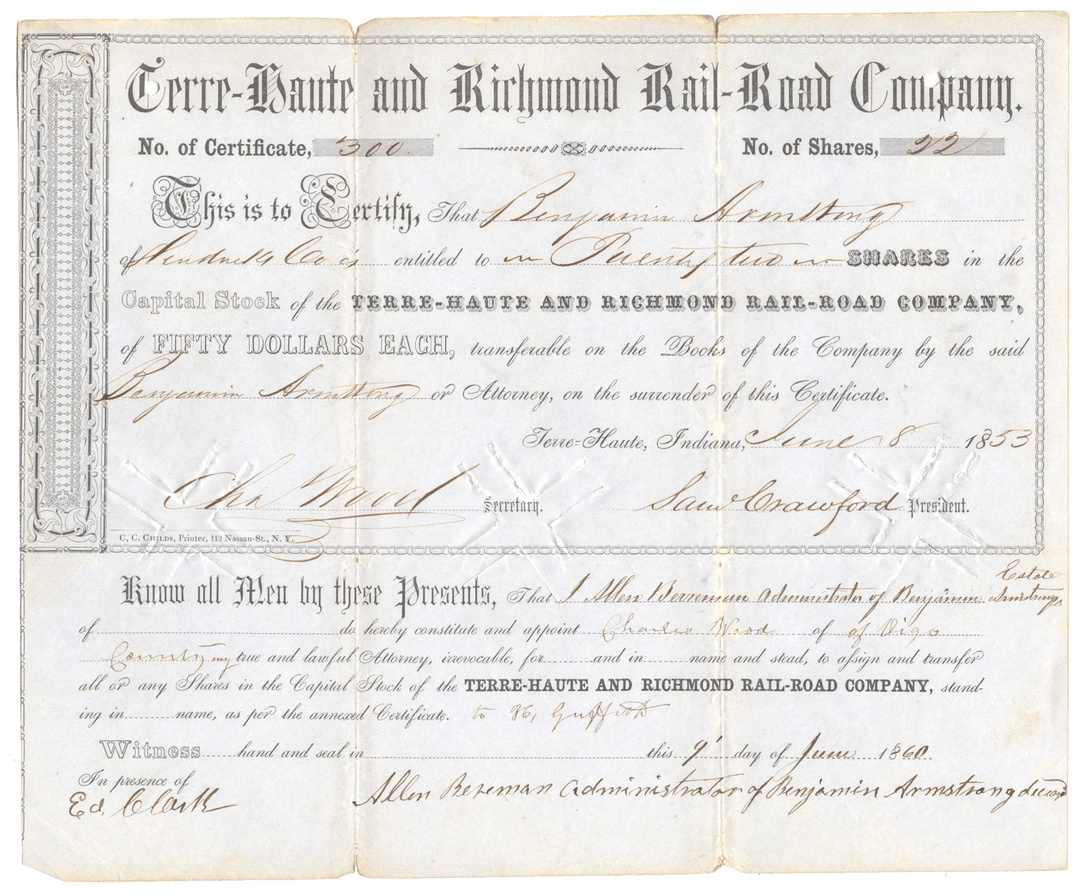 Terre-Haute and Richmond Rail-Road Company.
No. of Certificate, 300. No. of Shares, 22
This is to Certify, That Benjamin Armstrong
of Hendricks Co is entitled to Twenty two SHARES in the
Capital Stock of the TERRE-HAUTE AND RICHMOND RAIL-ROAD COMPANY,
of FIFTY DOLLARS EACH, transferable on the Books of the Company by the said
Benjamin Armstrong or Attorney, on the surrender of this Certificate.
Terre-Haute, Indiana, June 8 1853
Chs Wood Secretary. Saml Crawford President.
C. C. CHILDS, Printer, 113 Nassau-St., N. Y.
Know all Men by these Presents, That I Allen Berreman administrator of Benjamin Armstrongs Estate
of do hereby constitute and appoint Charles Wood of of Vigo
County my true and lawful Attorney, irrevocable, for and in name and stead, to assign and transfer
all or any Shares in the Capital Stock of the TERRE-HAUTE AND RICHMOND RAIL-ROAD COMPANY, stand-
ing in name, as per the annexed Certificate. to
Witness hand and seal in this 9' day of June 1860.
In presence of
Ed. Clark Allen Bereman administrator of Benjamin Armstrong